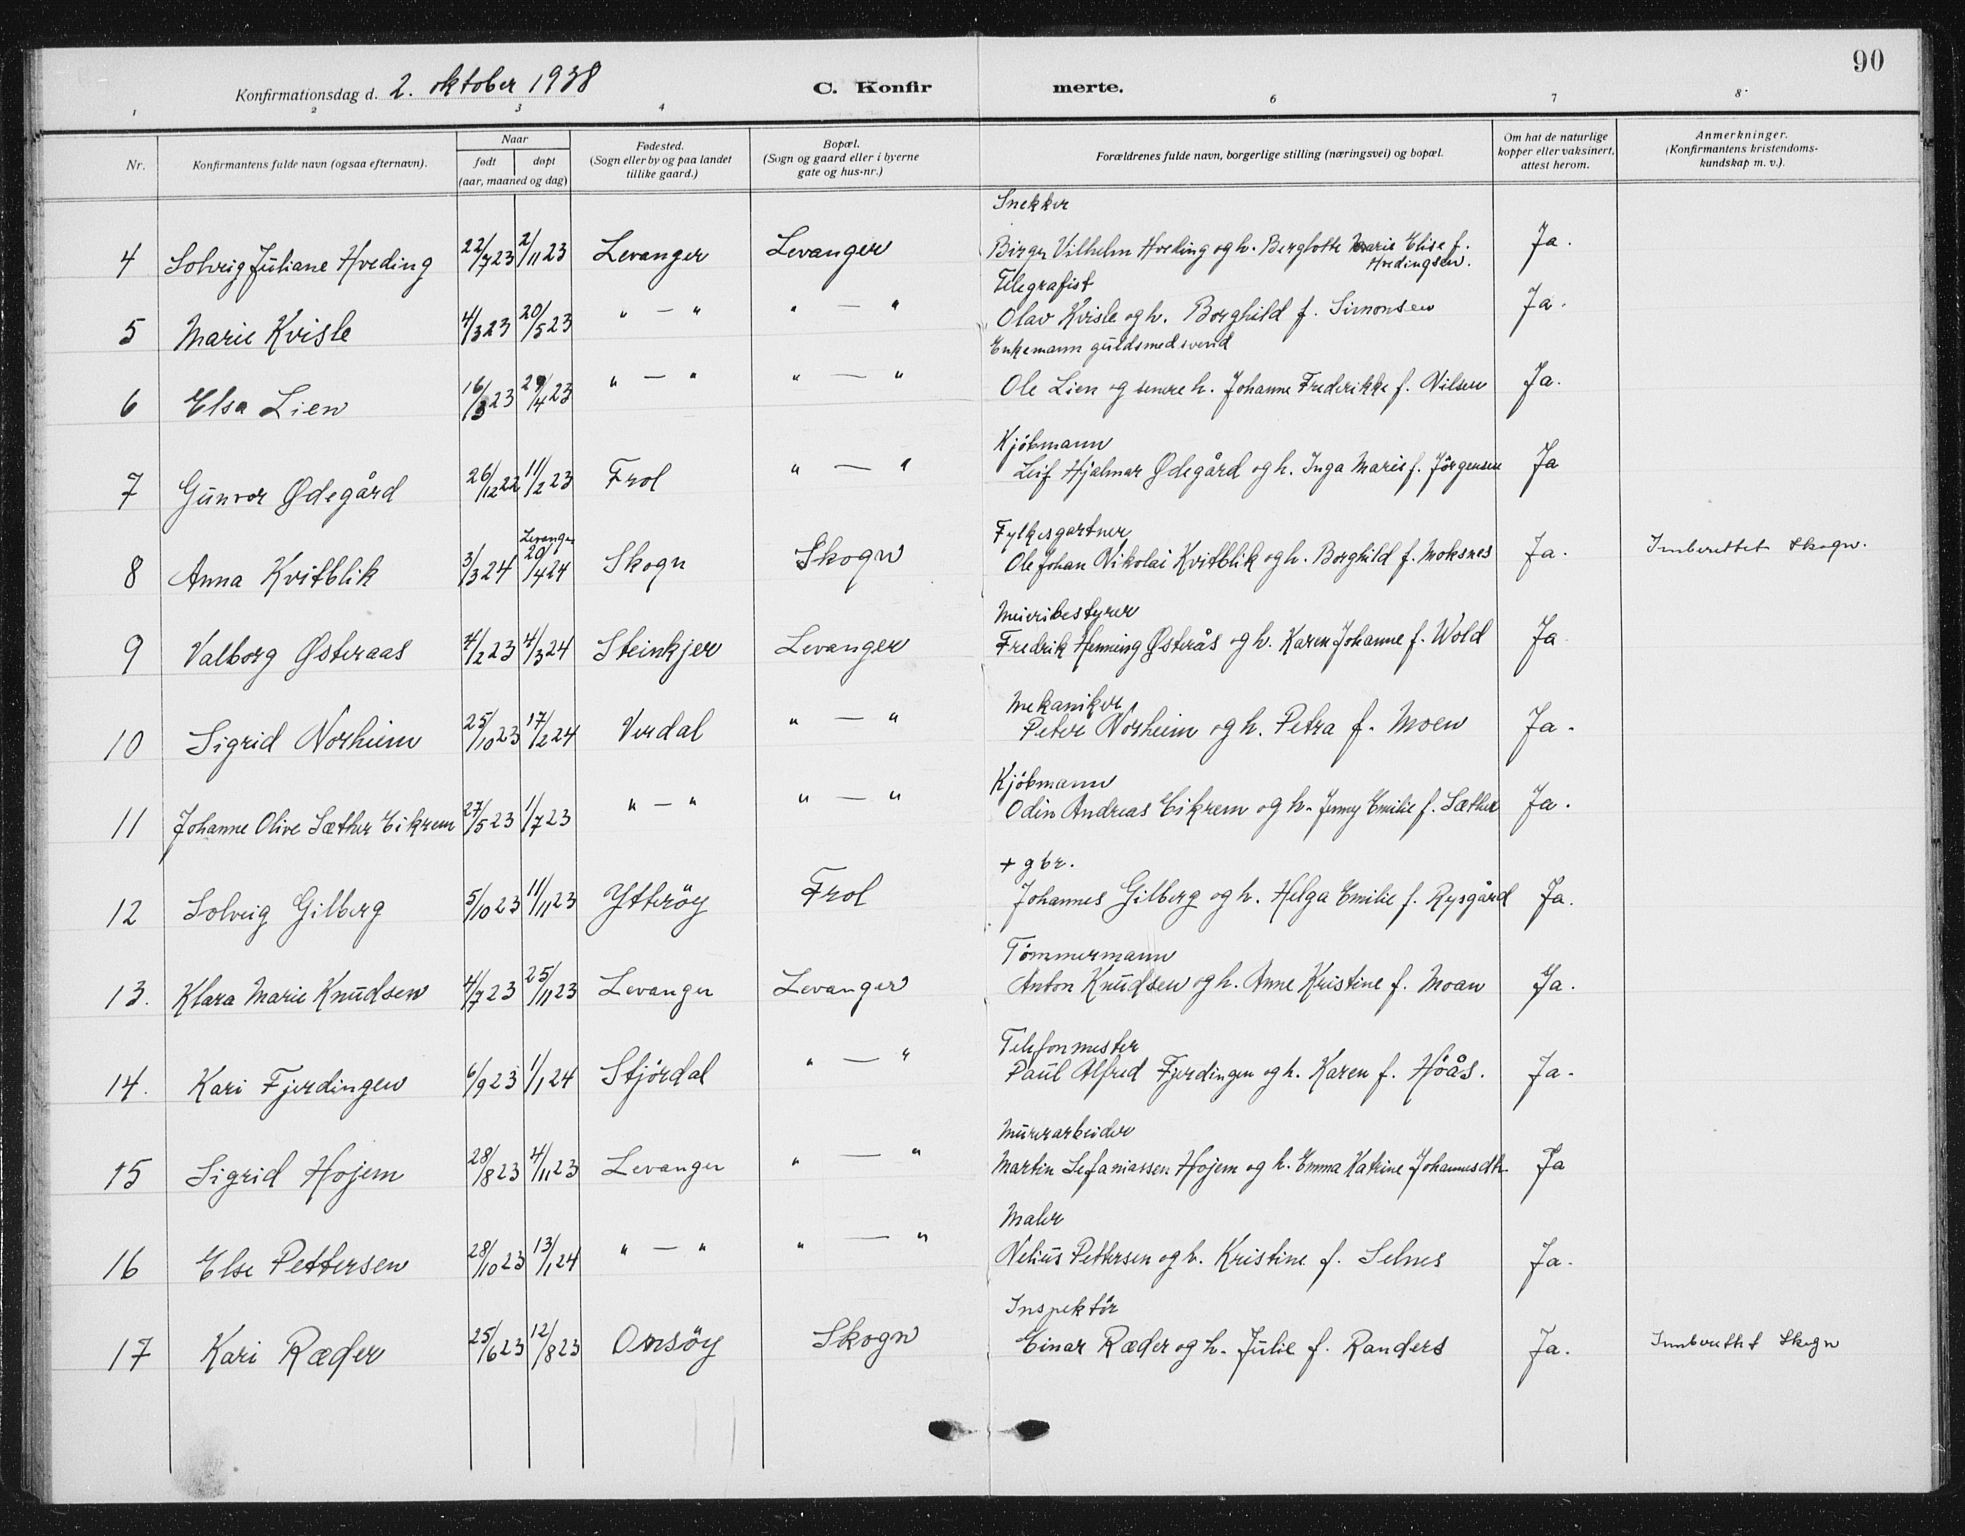 90
Konfirmationsdag d. 2. oktober 1938 C. Konfir merte.
1 2 3 4 6 7 8
Nr. Konfirmantens fulde navn (ogsaa efternavn). Naar født døpt (aar, maaned og dag) Fødested. (Sogn eller by og paa landet tillike gaard.) Bopæl. (Sogn og gaard eller i byerne gate og hus-nr.) Forældrenes fulde navn, borgerlige stilling (næringsvei) og bopæl. Om hat de naturlige kopper eller vaksinert, attest herom. Anmerkninger. (Konfirmantens kristendoms- kundskap m. v.).
Snekker
4 Solveig Juliane Hveding 22/7 23 2/11 23 Levanger Levanger Birger Vilhelm Hveding og h. Bergliotte Marie Elise f. Hvedingsen. Ja.
Telegrafist
5 Marie Kvisle 4/3 23 20/5 23 " — " " — " Olav Kvisle og h. Borghild f. Simonsen Ja.
Enkemann guldsmedsvend
6 Elsa Lien 16/3 23 29/4 23 " — " " — " Ole Lien og senere h. Johanne Frederikke f. Nilsen Ja.
Kjöbmann
7 Gunvor Ødegård 26/12 22 11/2 23 Frol " — " Leif Hjalmar Ødegård og h. Inga Marie f. Jörgensen Ja
Fylkesgartner
8 Anna Kvitblik 3/3 24 Levanger 20/4 24 Skogn Skogn Ole Johan Nikolai Kvitblik og h. Borghild f. Moksnes Ja. Innberettet Skogn.
Meieribestyrer
9 Valborg Østeraas 4/2 23 4/3 24 Steinkjer Levanger Fredrik Henning Østerås og h. Karen Johanne f. Wold Ja
Mekaniker
10 Sigrid Norheim 25/10 23 17/2 24 Verdal " — " Peter Norheim og h. Petra f. Moen Ja.
Kjöbmann
11 Johanne Olive Sæther Eikrem 27/5 23 1/7 23 " — " " — " Odin Andreas Eikrem og h. Jenny Emilie f. Sæther Ja.
+ gbr.
12 Solveig Gilberg 5/10 23 11/11 23 Ytteröy Frol Johannes Gilberg og h. Helga Emilie f. Rysgård Ja.
Tömmermann
13. Klara Marie Knudsen 4/7 23 25/11 23 Levanger Levanger Anton Knudsen og h. Anne Kristine f. Moan Ja.
Telefonmester
14. Kari Fjerdingen 6/9 23 1/1 24 Stjördal " — " Paul Alfred Fjerdingen og h. Karen f. Höås. Ja.
Murerarbeider
15 Sigrid Hojem 28/8 23 4/11 23 Levanger " — " Martin Sefaniassen Hojem og h. Emma Katrine Johannesdtr. Ja
Maler
16 Else Pettersen 28/10 23 13/1 24 " — " " — " Nelius Pettersen og h. Kristine f. Selnes Ja.
Inspektör
17 Kari Ræder 25/6 23 12/8 23 Onsöy Skogn Einar Ræder og h. Julie f. Randers Ja. Innberettet Skogn